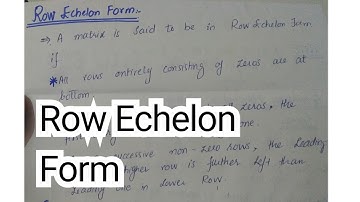 Row Echelon Form:-
⇒ A matrix is said to be in Row Echelon Form
if
* All rows entirely consisting of zeros are at
bottom.
of zeros, the
Row Echelon
one.
successive non-zero rows, the leading
Form
higher row is further left than
leading one in lower Row.